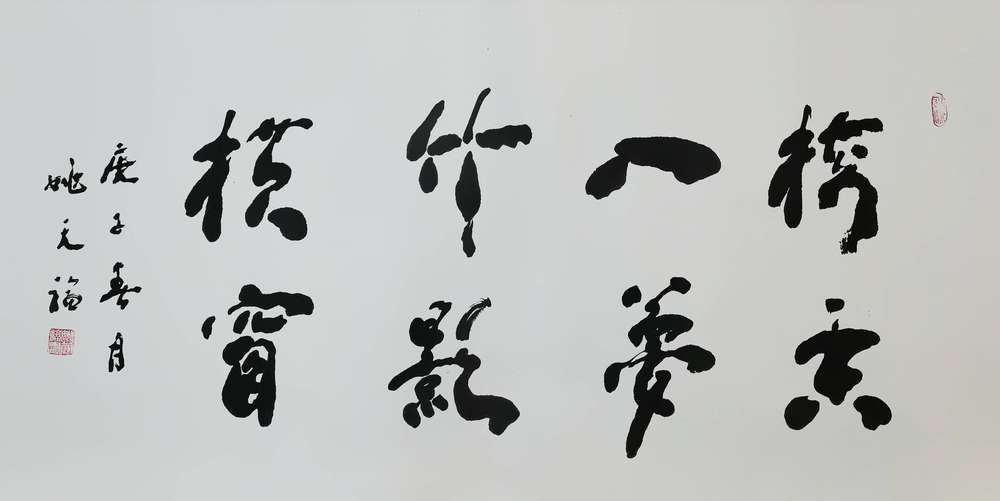 梅香
入夢
竹影
横窗
庚子春月
姚 福